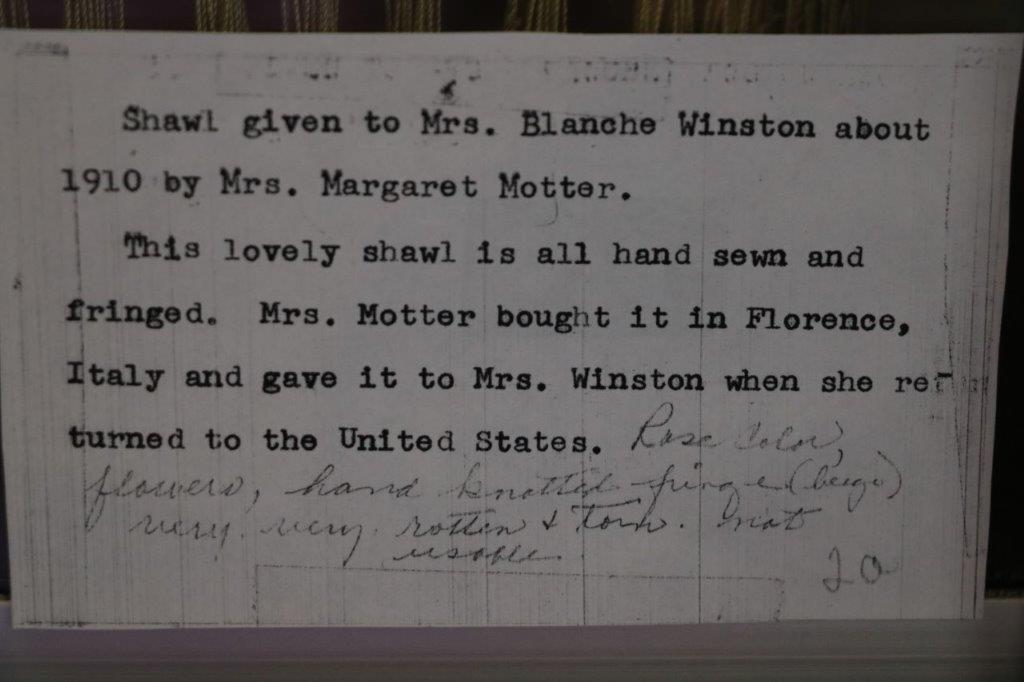 Shawl given to Mrs. Blanche Winston about
1910 by Mrs. Margaret Motter.
This lovely shawl is all hand sewn and
fringed. Mrs. Motter bought it in Florence,
Italy and gave it to Mrs. Winston when she re-
turned to the United States. Rose Color,
flowers, hand knotted fringe (beige)
very, very rotten & torn. not
usable.
20